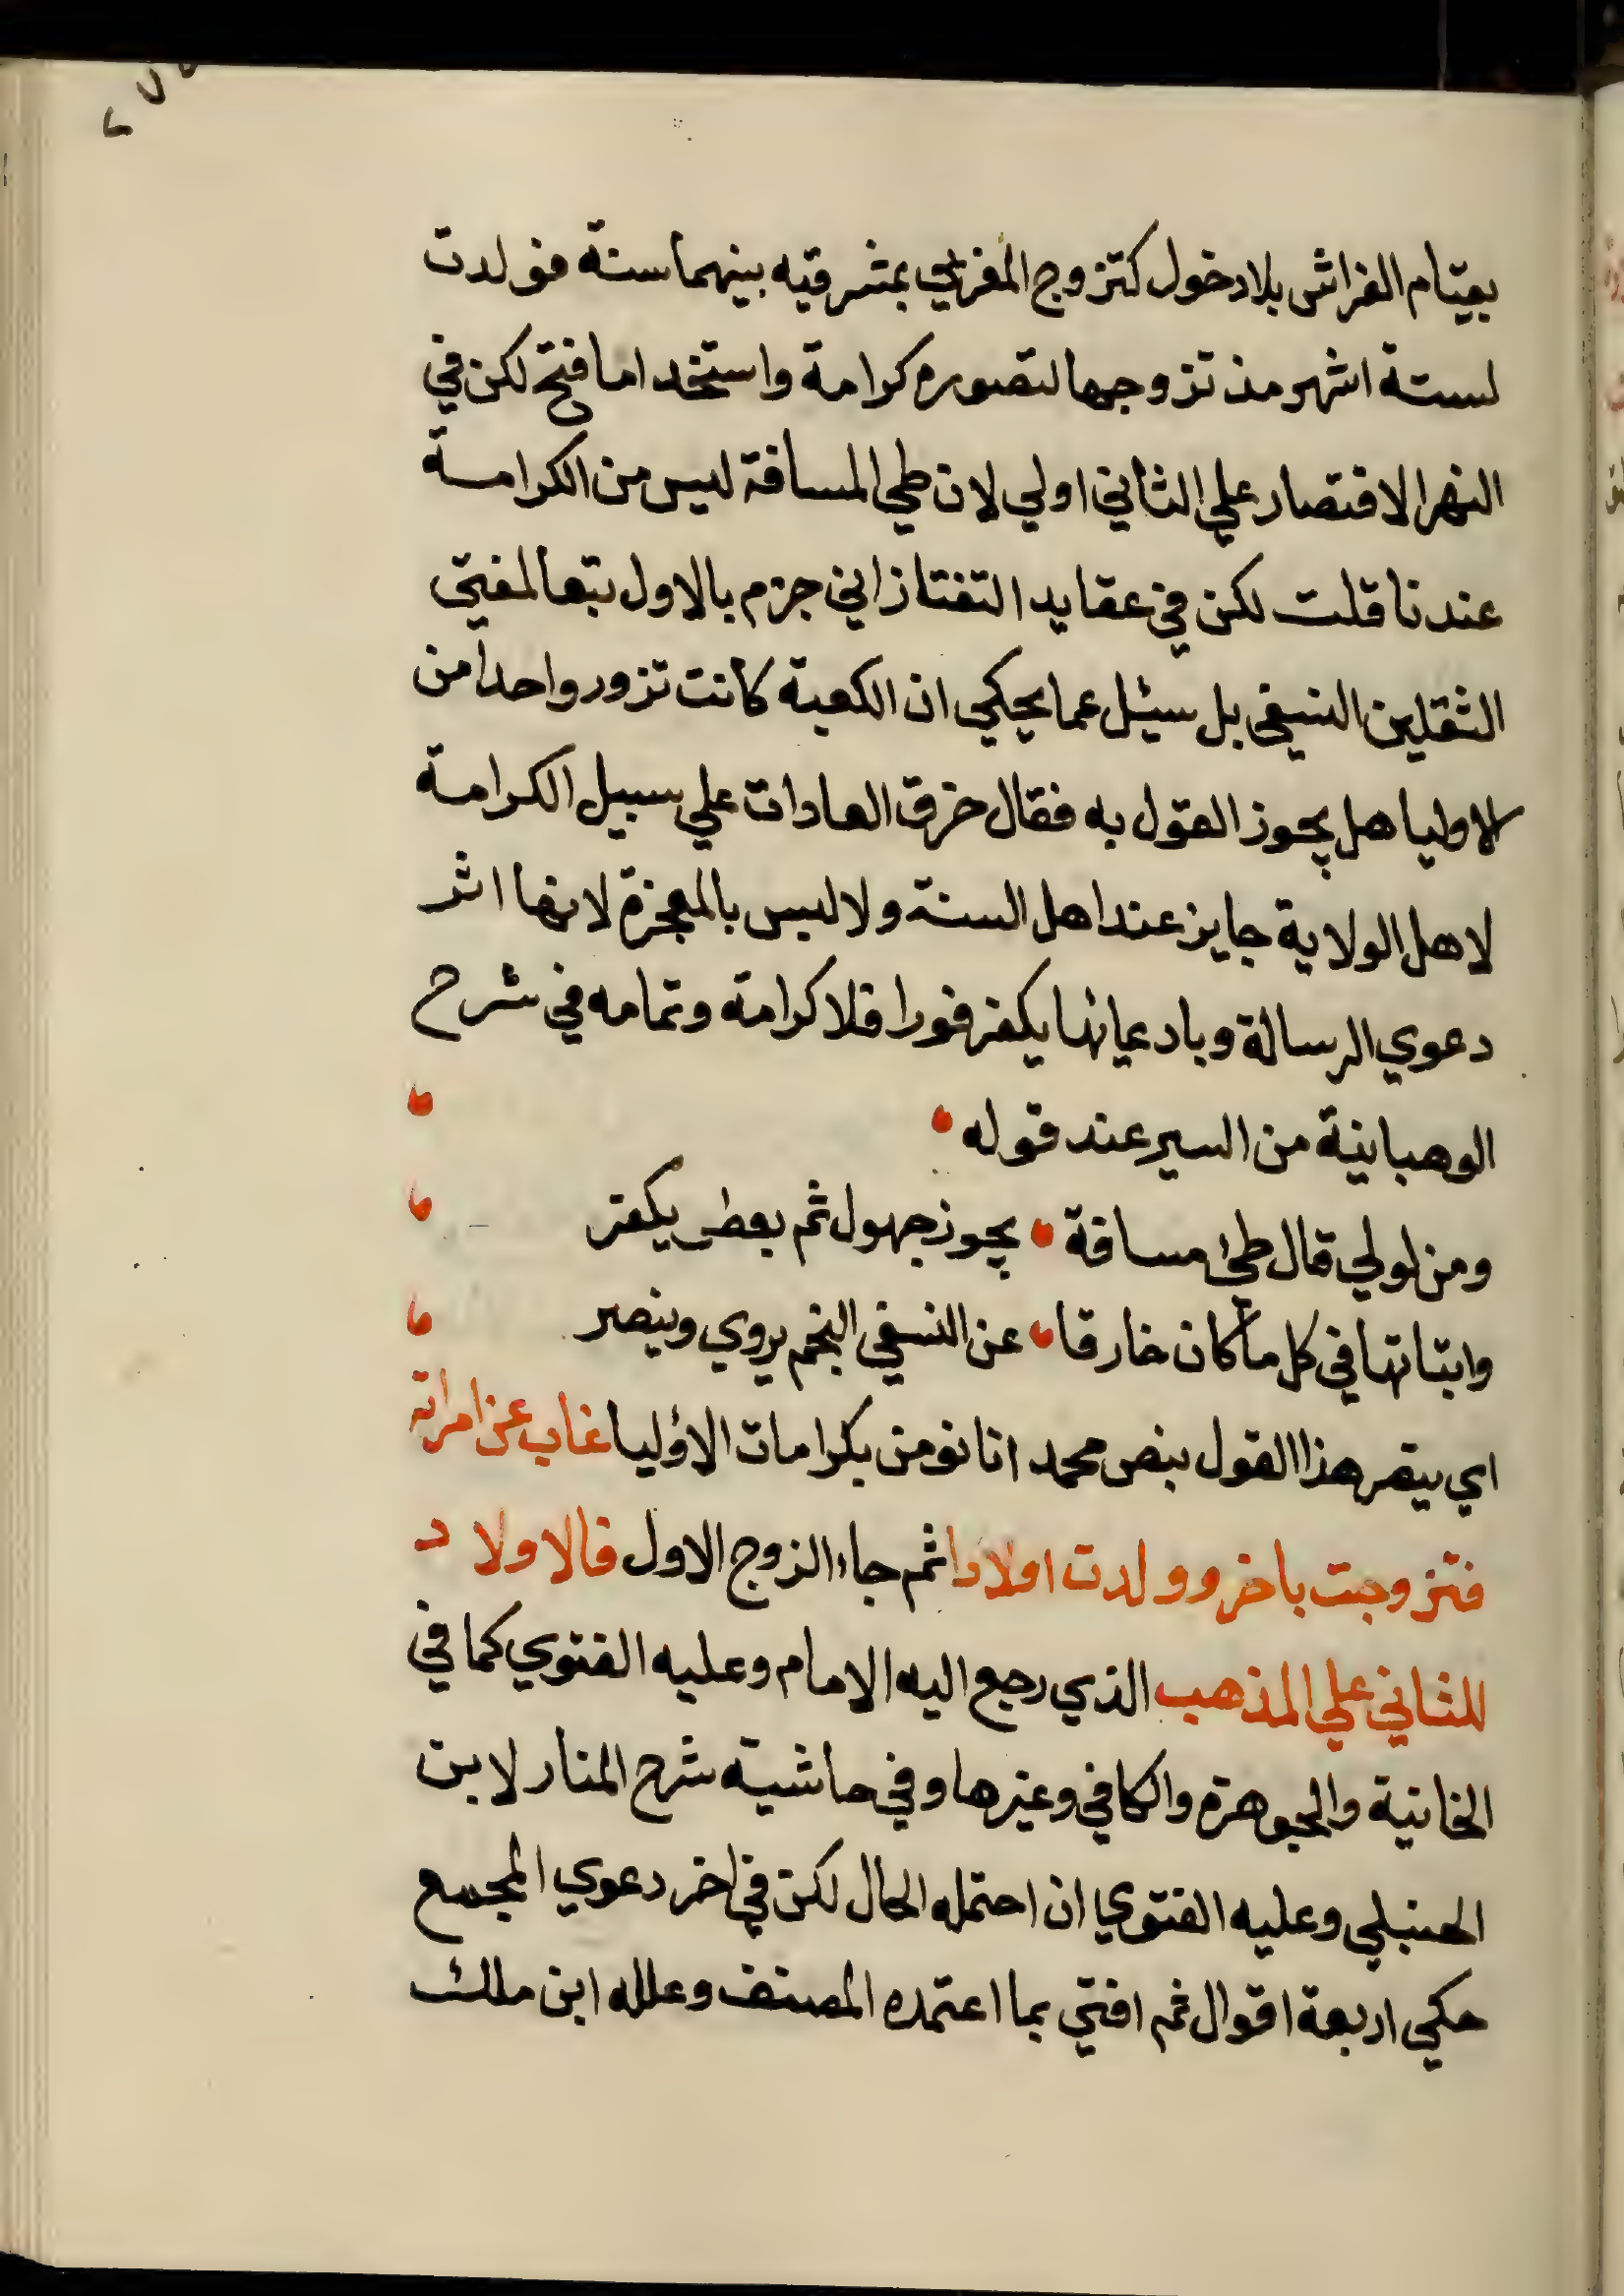 بقيام الفراش بلا دخول كتزوج المغربي بمشرقيه بينهما سنة فولدت
لستة اشهر مذ تزوجها لتصوره كرامة واستخداما فتح لكن في
النهر الاقتصار علي الثاني اولي لان طي المسافة ليس من الكرامة
عندنا قلت لكن في عقايد التفتازاني جزم بالاول تبعا لمفتي
الثقلين النسفي بل سيئل عما يحكي ان الكعبة كانت تزور واحدا من
الاوليا هل يجوز القول به فقال خرق العادات علي سبيل الكرامة
لاهل الولاية جايز عند اهل السنة ولا لبس بالمعجزة لانها اثر
دعوي الرسالة وبادعيائها يكفر فورا فلا كرامة وتمامه في شرح
الوهبانية من السير عند قوله
ومن لولي قال طئ مسافة يجوز جهول ثم بعض يكفر
واثباتها في كل ما كان خارقا عن النسفي النجم يروي وينصر
اي ينصر هذا القول بنص محمد انا نومن بكرامات الاوليا غاب عن امراته
فتزوجت باخر وولدت اولادا ثم جاء الزوج الاول فالاولاد
للثاني علي المذهب الذي رجع اليه الامام وعليه الفتوي كما في
الخانية والجوهرة والكافي وغيرها وفي حاشية شرح المنار لابن
الحنبلي وعليه الفتوي ان احتمله الحال لكن في اخر دعوي المجمع
حكي اربعة اقوال ثم افتي بما اعتمده المصنف وعلله ابن ملك